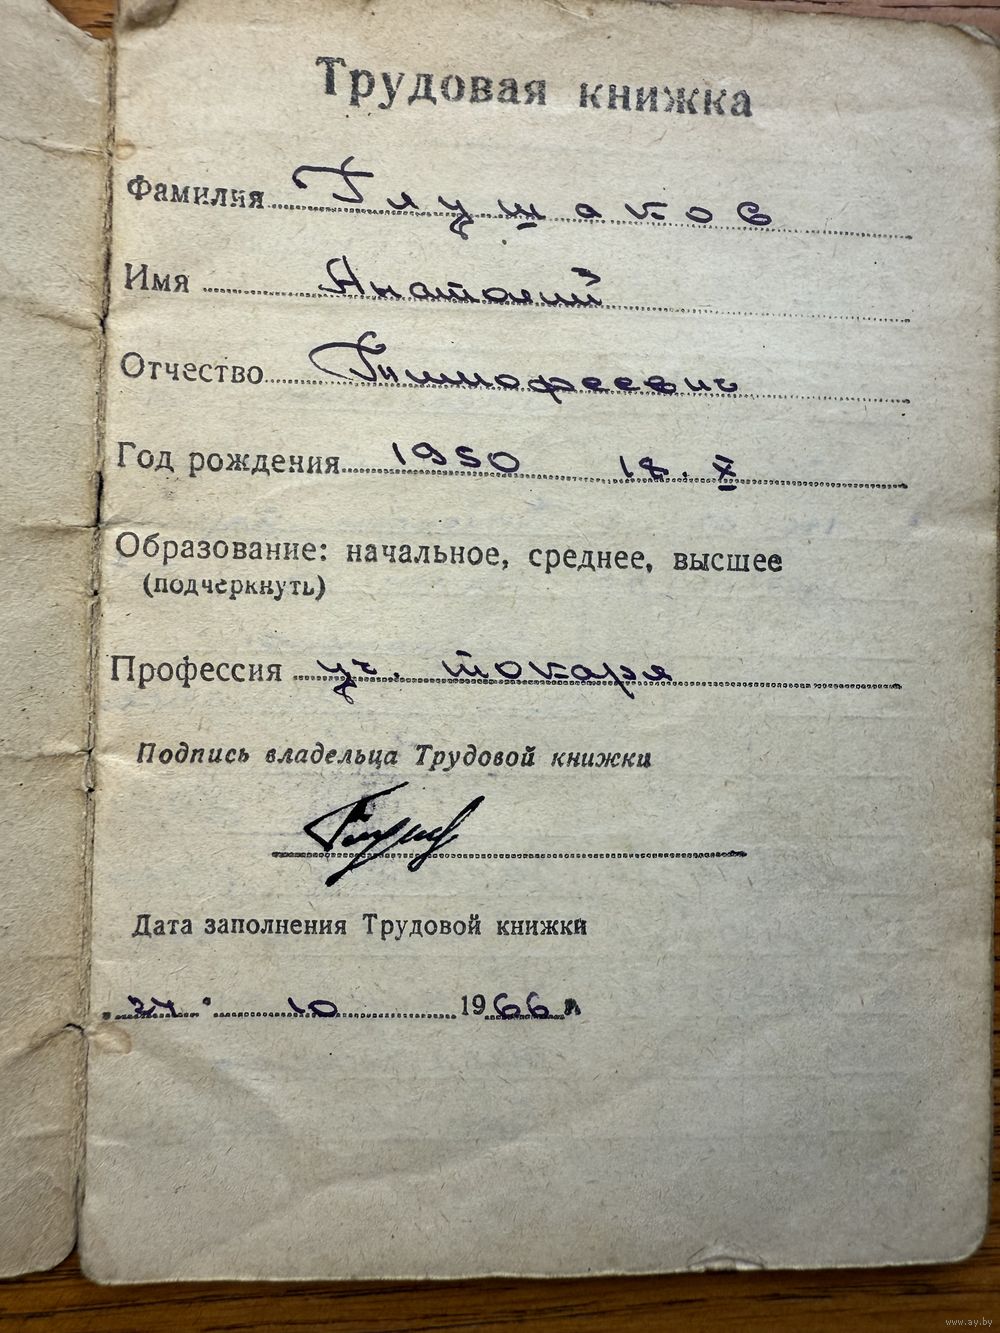 Трудовая книжка
Фамилия Глушаков
Имя Анатолий
Отчество Тимофеевич
Год рождения 1950 18.X
Образование: начальное, среднее, высшее
(подчеркнуть)
Профессия уч. токаря
Подпись владельца Трудовой книжки
Дата заполнения Трудовой книжки
10 1966 г.
www.ay.by